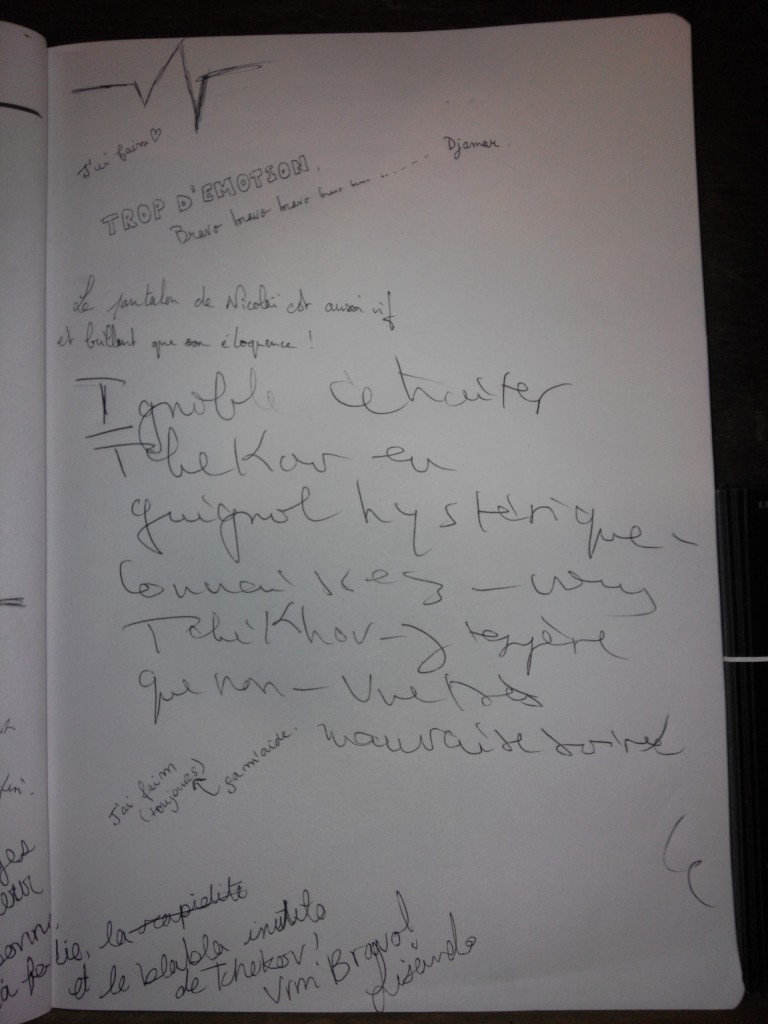 J'ai faim ♡
TROP D'EMOTION.
Bravo bravo bravo bravo ........... Djamar.
Le pantalon de Nicolaï est aussi vif
et brillant que son éloquence !
Ignoble de traiter
Tchekov en
guignol hystérique -
Connaissez - vous
Tchekhov - J'espère
que non - Une très
mauvaise soirée
J'ai faim
(toujours)
gamiaide.
la rapidité
et le blabla inutile
de Tchekov !
Vrm Bravo !